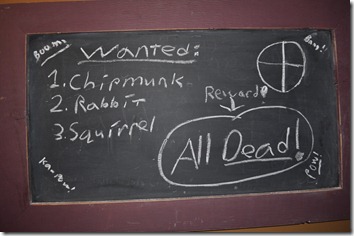 Boom!
Wanted:
Bang!!
1. Chipmunk
2. Rabbit
3. Squirrel
Reward!
All Dead!
Ka-Boom!
POW!